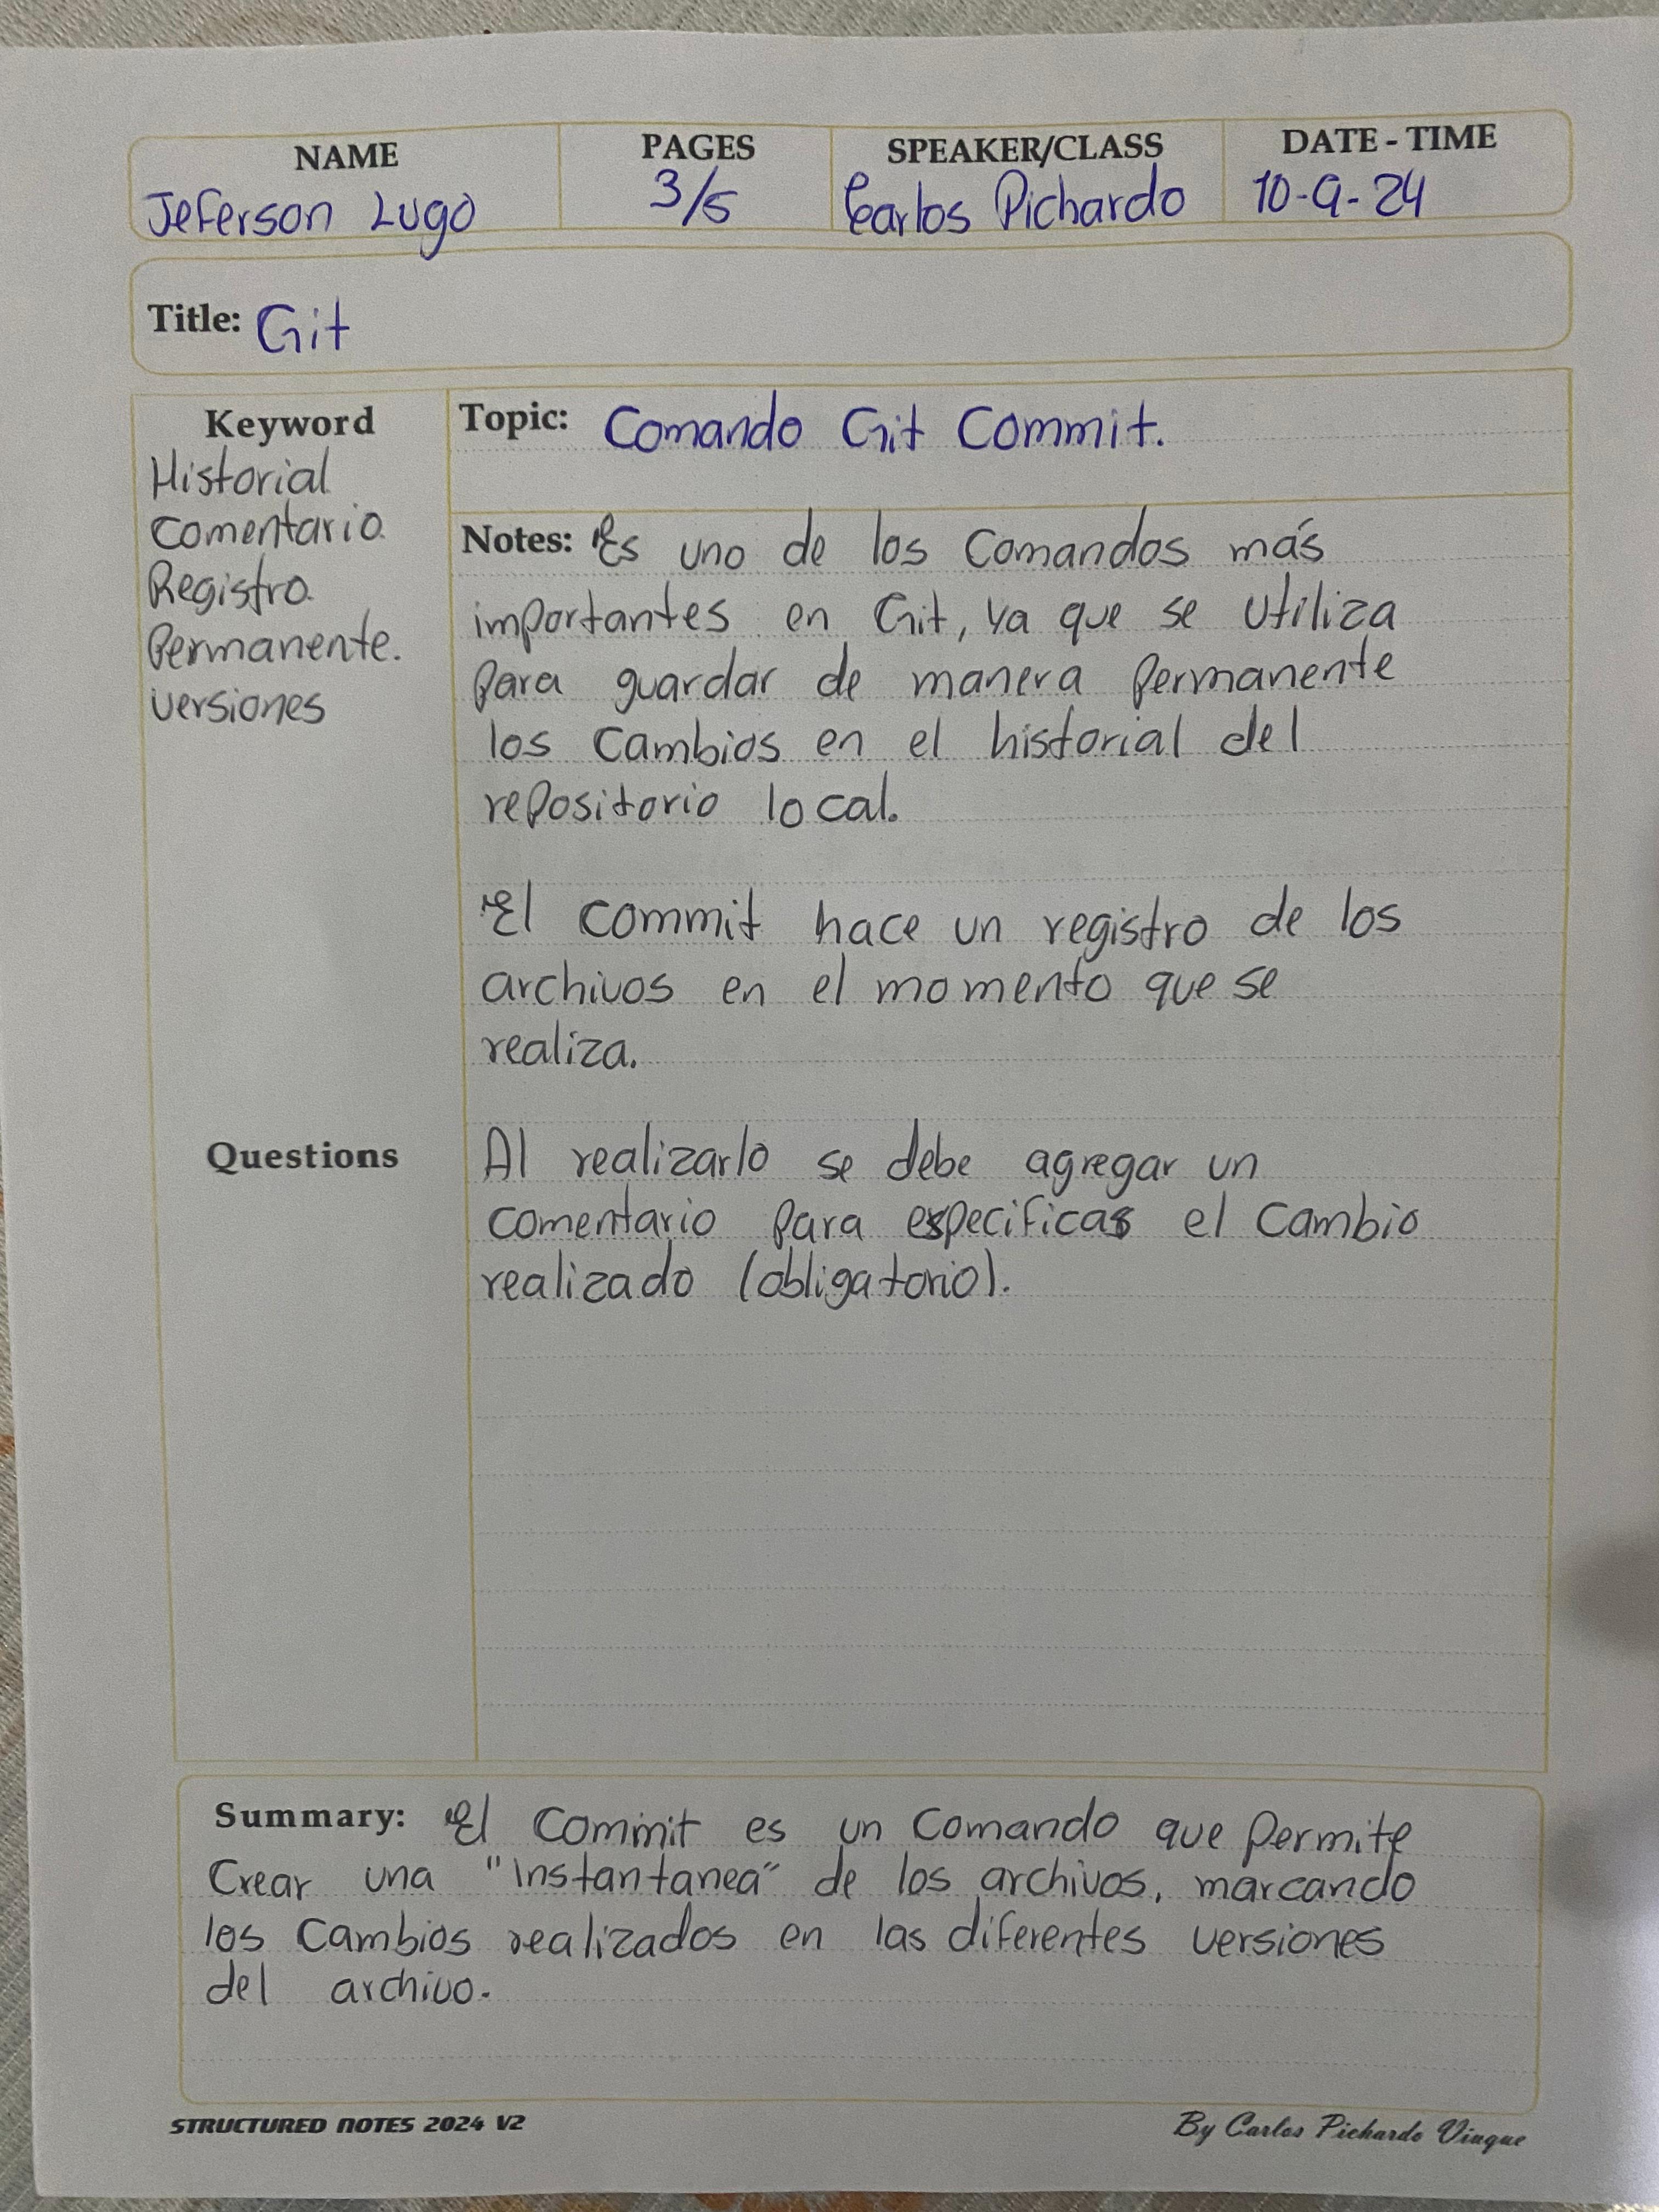 NAME PAGES SPEAKER/CLASS DATE - TIME
Jeferson Lugo 3/5 Carlos Pichardo 10-9-24
Title: Git
Keyword
Historial
Comentario.
Registro.
Permanente.
versiones
Topic: Comando Git Commit.
Notes: Es uno de los Comandos más
importantes en Git, ya que se utiliza
para guardar de manera permanente
los Cambios en el historial del
repositorio local.
El commit hace un registro de los
archivos en el momento que se
realiza.
Questions
Al realizarlo se debe agregar un
comentario para especificas el Cambio
realizado (obligatorio).
Summary: El Commit es un Comando que Permite
Crear una "instantanea" de los archivos, marcando
los Cambios realizados en las diferentes versiones
del archivo.
STRUCTURED NOTES 2024 V2
By Carlos Pichardo Viuque